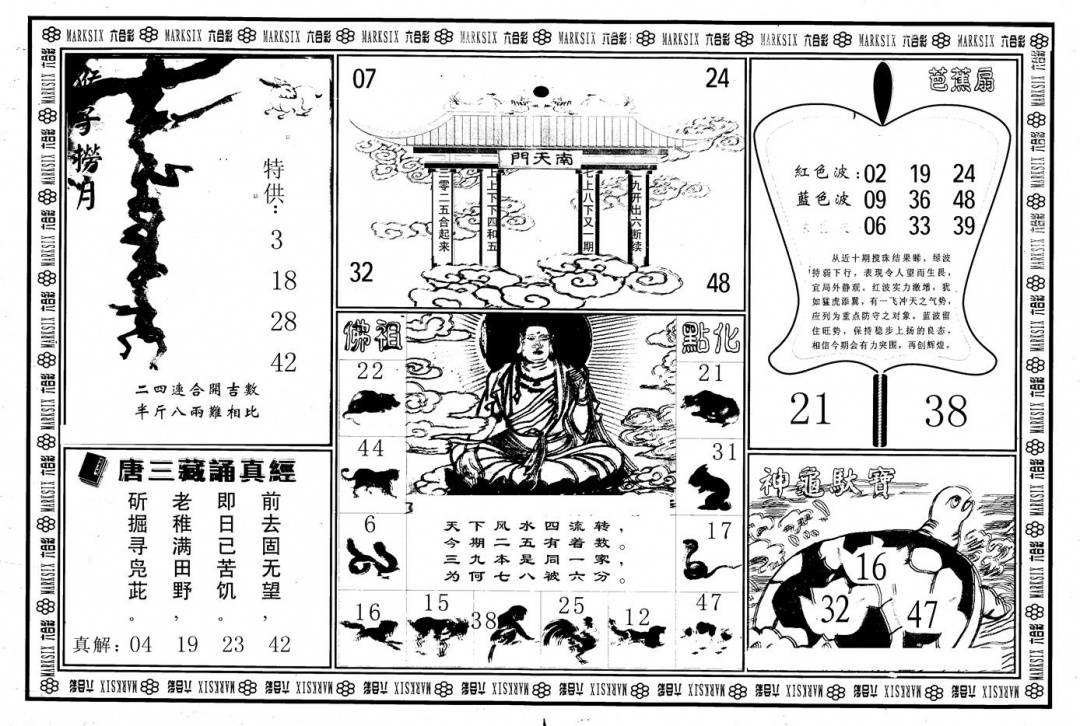 MARKSIX 六合彩 MARKSIX 六合彩 MARKSIX 六合彩 MARKSIX 六合彩 MARKSIX 六合彩 MARKSIX 六合彩 MARKSIX 六合彩 MARKSIX 六合彩 MARKSIX 六合彩 MARKSIX 六合彩
猴子撈月
特供：
3
18
28
42
二四連合開吉數
半斤八兩難相比
唐三藏誦真經
前去固无望，
即日已苦饥。
老稚满田野，
斫掘寻凫茈。
真解：04 19 23 42
07
24
南天門
三零二五合起来
上上下下四和五
七上八下又一期
九开出六断续
32
48
佛祖
點化
22
44
6
16
15
38
25
12
47
21
31
17
天下风水四流转，
今期二五有着数。
三九本是同一家，
为何七八被六分。
芭蕉扇
紅色波：02 19 24
藍色波 09 36 48
06 33 39
从近十期搅珠结果睇，绿波
持弱下行，表现令人望而生畏，
宜局外静观。红波实力激增，犹
如猛虎添翼，有一飞冲天之气势，
应列为重点防守之对象。蓝波留
住旺势，保持稳步上扬的良态，
相信今期会有力突围，再创辉煌。
21
38
神龜馱寶
16
32
47